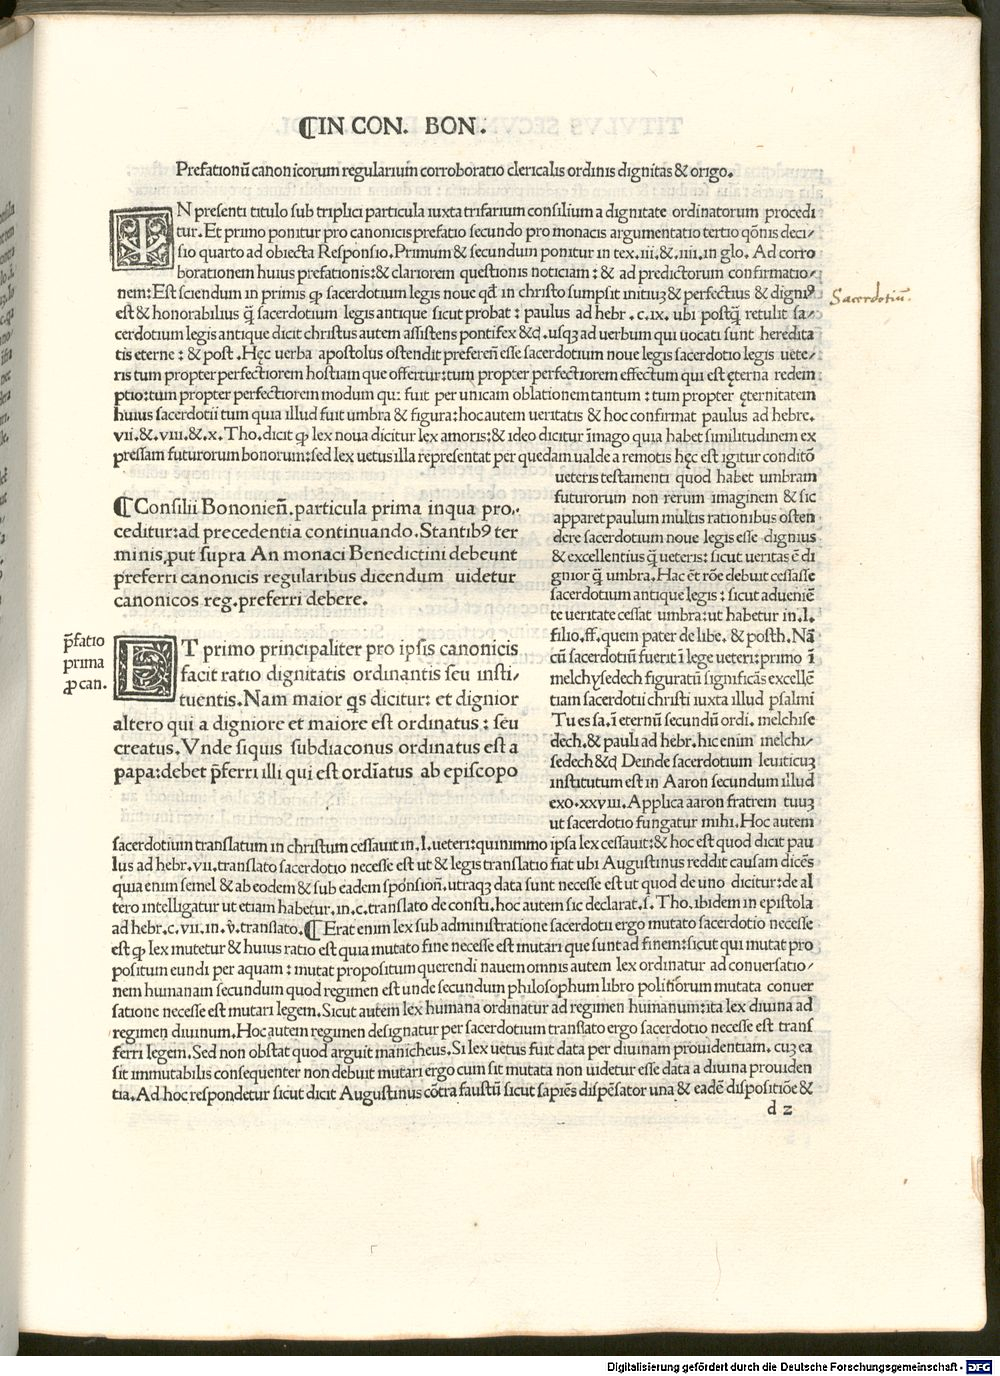 ¶IN CON. BON.
Prefationū canonicorum regularium corroboratio clericalis ordinis dignitas & origo.
IN presenti titulo sub triplici particula iuxta trifarium consilium a dignitate ordinatorum procedi
tur. Et primo ponitur pro canonicis prefatio secundo pro monacis argumentatio tertio qōnis deci/
sio quarto ad obiecta Responsio. Primum & secundum ponitur in tex. iii. & .iiii. in glo. Ad corro
borationem huius prefationis: & clariorem questionis noticiam: & ad predictorum confirmatio/
nem: Est sciendum in primis ꝙ sacerdotium legis noue qd̄ in christo sumpsit initiuꝫ & perfectius & digniꝰ
est & honorabilius q̄ sacerdotium legis antique sicut probat: paulus ad hebr .c. ix. ubi postq̄ retulit sa/
cerdotium legis antique dicit christus autem assistens pontifex &c̄. usqꝫ ad uerbum qui uocati sunt heredita
tis eterne: & post. Hęc uerba apostolus ostendit preferen̄ esse sacerdotium noue legis sacerdotio legis uete/
ris tum propter perfectiorem hostiam que offertur: tum propter perfectiorem effectum qui est ęterna redem
ptio: tum propter perfectiorem modum qu: fuit per unicam oblationem tantum: tum propter ęternitatem
huius sacerdotii tum quia illud fuit umbra & figura: hoc autem ueritatis & hoc confirmat paulus ad hebre.
vii. &. viii. &. x. Tho. dicit ꝙ lex noua dicitur lex amoris: & ideo dicitur imago quia habet similitudinem ex
pressam futurorum bonorum: sed lex uetus illa representat per quedam ualde a remotis hęc est igitur conditō
ueteris testamenti quod habet umbram
futurorum non rerum imaginem & sic
apparet paulum multis rationibus osten
dere sacerdotium noue legis esse dignius
& excellentius q̄ ueteris: sicut ueritas ē di
gnior q̄ umbra. Hac ēt rōe debuit cessasse
sacerdotium antique legis: sicut adueniē
te ueritate cessat umbra: ut habetur in. l.
filio. ff. quem pater de libe. & posth. Nā
cū sacerdotiū fuerit ī lege ueteri: primo ī
melchysedech figuratū significās excellē
tiam sacerdotii christi iuxta illud psalmi
Tu es sa. ī eternū secundū ordi. melchise
dech. & pauli ad hebr. hic enim melchi/
sedech &c̄ Deinde sacerdotium leuiticuꝫ
institutum est in Aaron secundum illud
exo. xxviii. Applica aaron fratrem tuuꝫ
ut sacerdotio fungatur mihi. Hoc autem
¶Consilii Bononien̄. particula prima in qua pro/
ceditur: ad precedentia continuando. Stantibꝰ ter
minis put supra An monaci Benedictini debeunt
preferri canonicis regularibus dicendum uidetur
canonicos reg. preferri debere.
p̄fatio
prima
ꝓ can.
ET primo principaliter pro ipsis canonicis
facit ratio dignitatis ordinantis seu insti/
tuentis. Nam maior qs dicitur: et dignior
altero qui a digniore et maiore est ordinatus: seu
creatus. Vnde siquis subdiaconus ordinatus est a
papa: debet p̄ferri illi qui est ordīatus ab episcopo
sacerdotium translatum in christum cessauit in. l. ueteri: quinimmo ipsa lex cessauit: & hoc est quod dicit pau
lus ad hebr. vii. translato sacerdotio necesse est ut & legis translatio fiat ubi Augustinus reddit causam dicēs
quia enim semel & ab eodem & sub eadem sponsion̄. utraqꝫ data sunt necesse est ut quod de uno dicitur: de al
tero intelligatur ut etiam habetur. in. c. translato de consti. hoc autem sic declarat. s. Tho. ibidem in epistola
ad hebr. c. vii. in. v̄. translato. ¶Erat enim lex sub administratione sacerdotii ergo mutato sacerdotio necesse
est ꝙ lex mutetur & huius ratio est quia mutato fine necesse est mutari que sunt ad finem: sicut qui mutat pro
positum eundi per aquam: mutat propositum querendi nauem omnis autem lex ordinatur ad conuersatio/
nem humanam secundum quod regimen est unde secundum philosophum libro politicorum mutata conuer
satione necesse est mutari legem. Sicut autem lex humana ordinatur ad regimen humanum: ita lex diuina ad
regimen diuinum. Hoc autem regimen designatur per sacerdotium translato ergo sacerdotio necesse est trans
ferri legem. Sed non obstat quod arguit manicheus. Si lex uetus fuit data per diuinam prouidentiam. cuꝫ ea
sit immutabilis consequenter non debuit mutari ergo cum sit mutata non uidetur esse data a diuina prouiden
tia. Ad hoc respondetur sicut dicit Augustinus cōtra faustū sicut sapiēs dispēsator una & eadē dispositiōe &
d 2
Sacerdotiū.
Digitalisierung gefördert durch die Deutsche Forschungsgemeinschaft - DFG